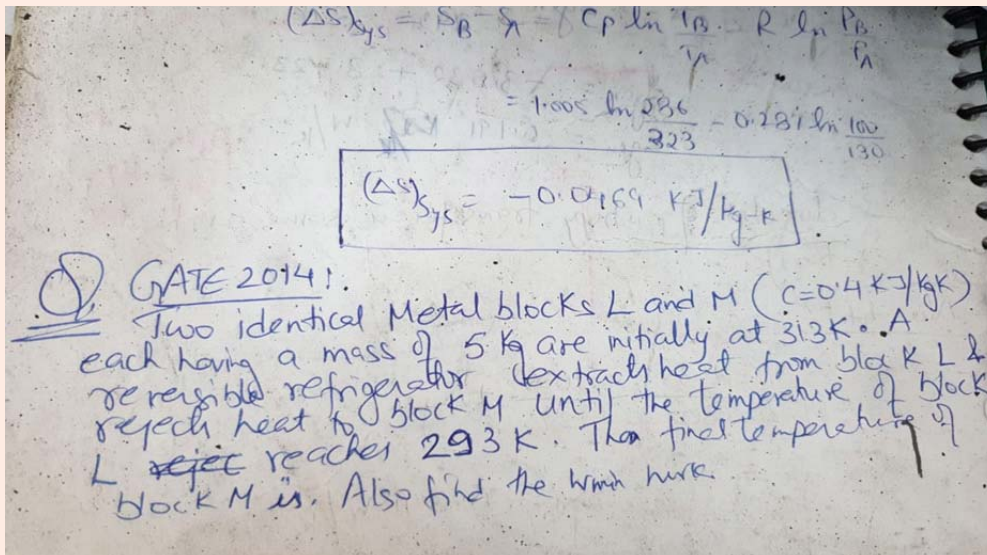 (ΔS)sys = SB - SA = Cp ln TB/TA - R ln PB/PA
= 1.005 ln 286/323 - 0.287 ln 100/130
(ΔS)sys = -0.0469 KJ/kg-K
Q. GATE 2014:
Two identical Metal blocks L and M (C=0.4 KJ/KgK)
each having a mass of 5 Kg are initially at 313K. A
reversible refrigerator extracts heat from block L &
rejects heat to block M until the temperature of block
L rejec reaches 293 K. Then final temperature of
block M is. Also find the wmin